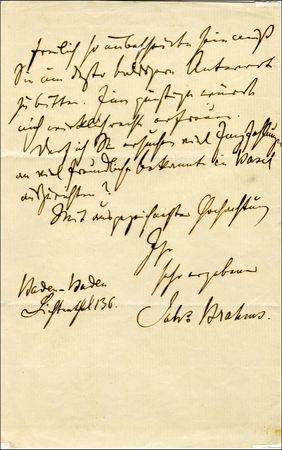 freilich so sein muß
Sie um desto baldigere Antwort
zu bitten. Eine günstige würde
mich wirklich recht erfreuen.
Darf ich Sie ersuchen viel Empfehlungen
an viel freundliche Bekannte in Basel
auszurichten?
Mit ausgezeichneter Hochachtung
Ihr
sehr ergebener
Johs Brahms.
Baden-Baden
Lichtenthal 136.